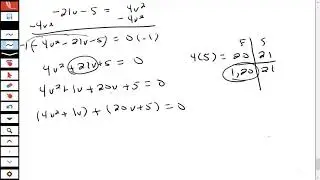 -21v-5 = 4v²
-4v² -4v²
-1(-4v²-21v-5) = 0(-1)
4v²+21v+5 = 0
4v²+1v+20v+5 = 0
(4v²+1v)+(20v+5) = 0
P S
4(5) = 20 21
1,20 21